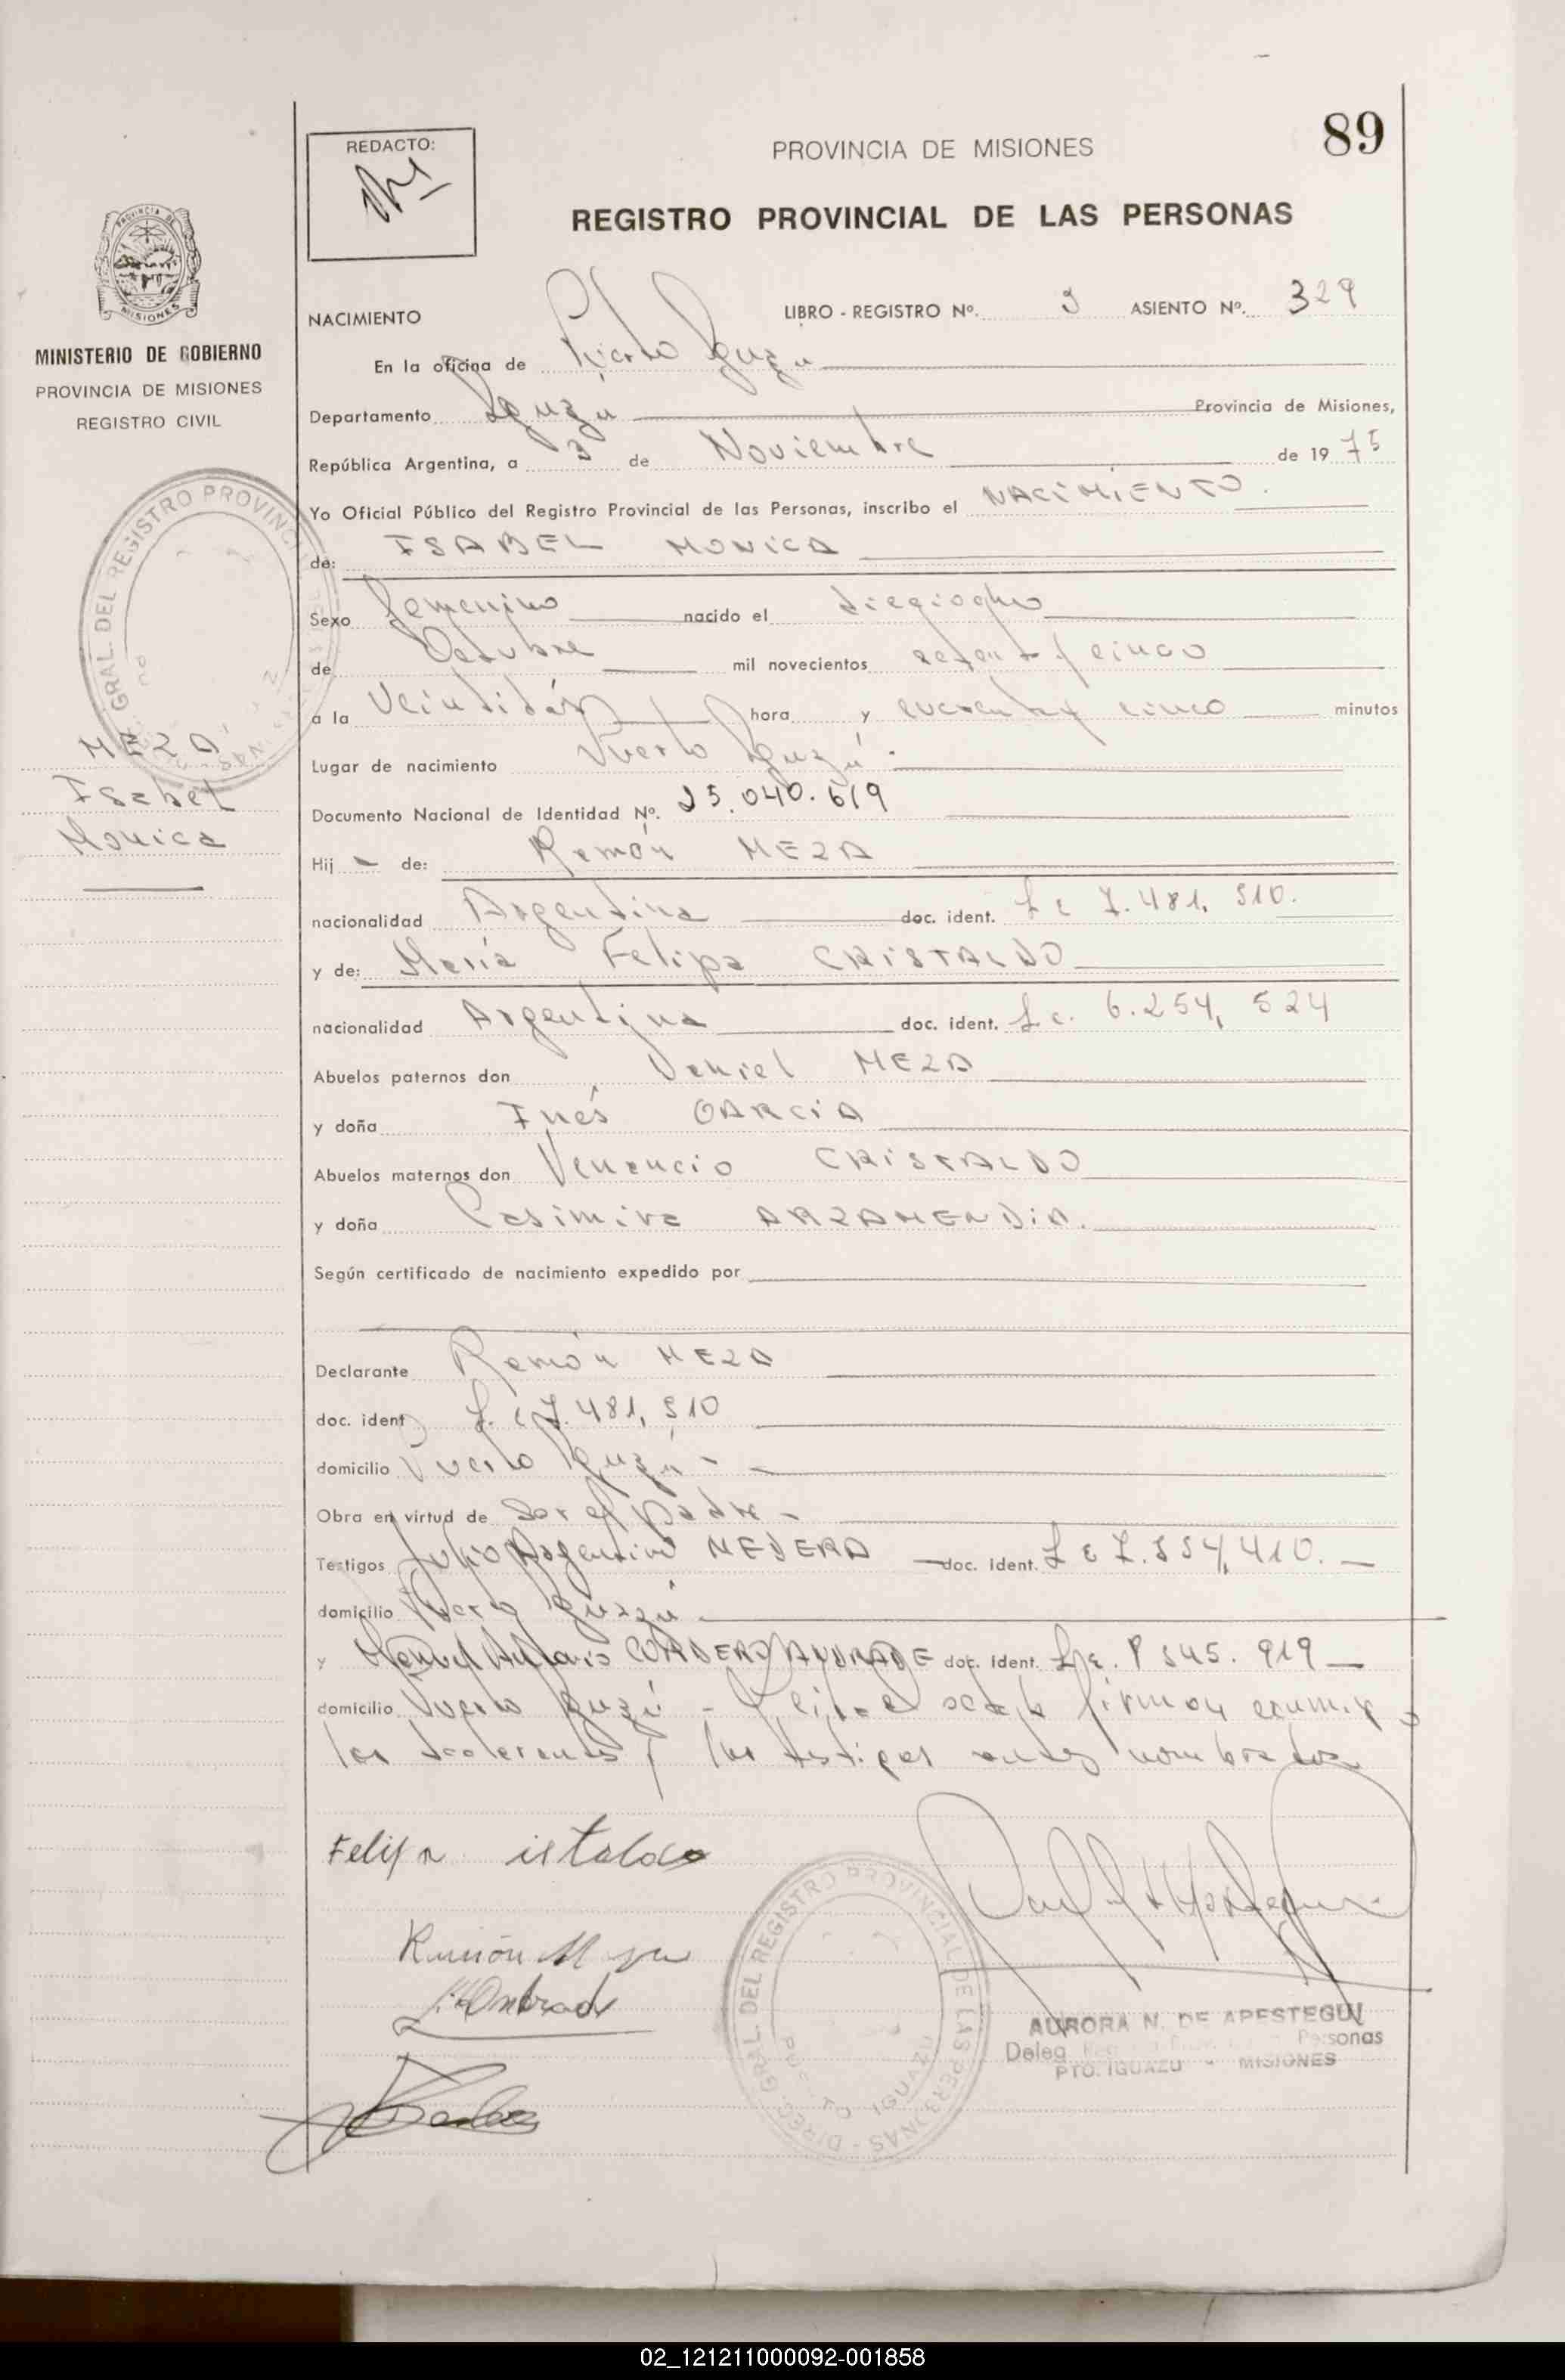 89
REDACTO:
PROVINCIA DE MISIONES
REGISTRO PROVINCIAL DE LAS PERSONAS
PROVINCIA DE
MISIONES
MINISTERIO DE GOBIERNO
PROVINCIA DE MISIONES
REGISTRO CIVIL
MEZA
Isabel
Monica
NACIMIENTO
LIBRO - REGISTRO Nº. 3 ASIENTO Nº. 329
En la oficina de Puerto Iguazú
Departamento Iguazú Provincia de Misiones,
República Argentina, a 3 de Noviembre de 1975
Yo Oficial Público del Registro Provincial de las Personas, inscribo el NACIMIENTO.
de: ISABEL MONICA
Sexo Femenino nacido el dieciocho
de Octubre mil novecientos setenta y cinco
a la Veintidós hora y cuarenta y cinco minutos
Lugar de nacimiento Puerto Iguazú.
Documento Nacional de Identidad Nº. 25.040.619
Hij de: Ramón MEZA
nacionalidad Argentina doc. ident. L E 7.481.510.
y de: María Felipa CRISTALDO
nacionalidad Argentina doc. ident. L.C. 6.254.524
Abuelos paternos don Daniel MEZA
y doña Inés GARCIA
Abuelos maternos don Venancio CRISTALDO
y doña Casimira ARZAMENDIA.
Según certificado de nacimiento expedido por
Declarante Ramón MEZA
doc. ident L. E 7.481.510
domicilio Puerto Iguazú -
Obra en virtud de Ser el padre -
Testigos Julio Argentino MEDERA doc. ident. L E 7.554.410. -
domicilio Puerto Iguazú -
y Manuel Antonio CORDERO ANDRADE doc. ident. L.E. 8 545.919 -
domicilio Puerto Iguazú - Leida el acta la firman conmigo
los declarantes y los testigos antes nombrados
Ramón Meza
DIREC. GRAL. DEL REGISTRO PROVINCIAL DE LAS PERSONAS
IGUAZU
AURORA N. DE APESTEGUI
Deleg Personas
PTO. IGUAZU - MISIONES
02_121211000092-001858